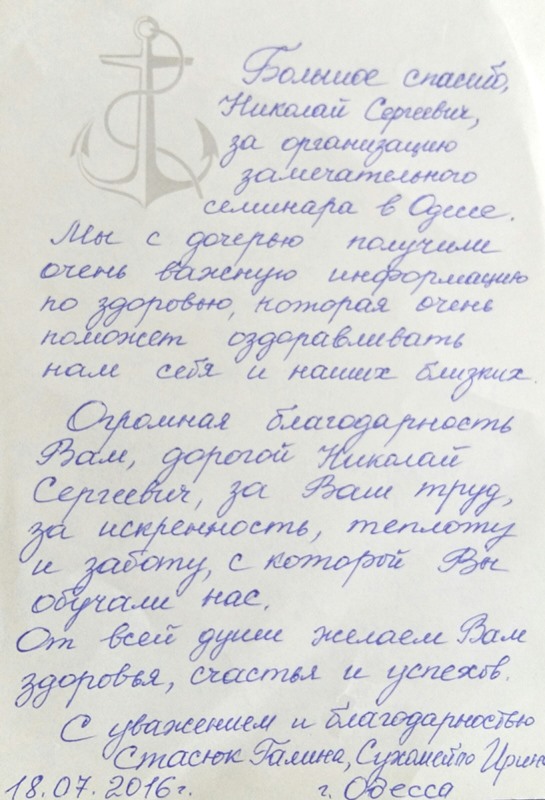 Большое спасибо,
Николай Сергеевич,
за организацию
замечательного
семинара в Одессе.
Мы с дочерью получили
очень важную информацию
по здоровью, которая очень
поможет оздоравливать
нам себя и наших близких.
Огромная благодарность
Вам, дорогой Николай
Сергеевич, за Ваш труд,
за искренность, теплоту
и заботу, с которой Вы
обучали нас.
От всей души желаем Вам
здоровья, счастья и успехов.
С уважением и благодарностью
Стасюк Галина, Сухомейло Ирина
18.07.2016г. г. Одесса